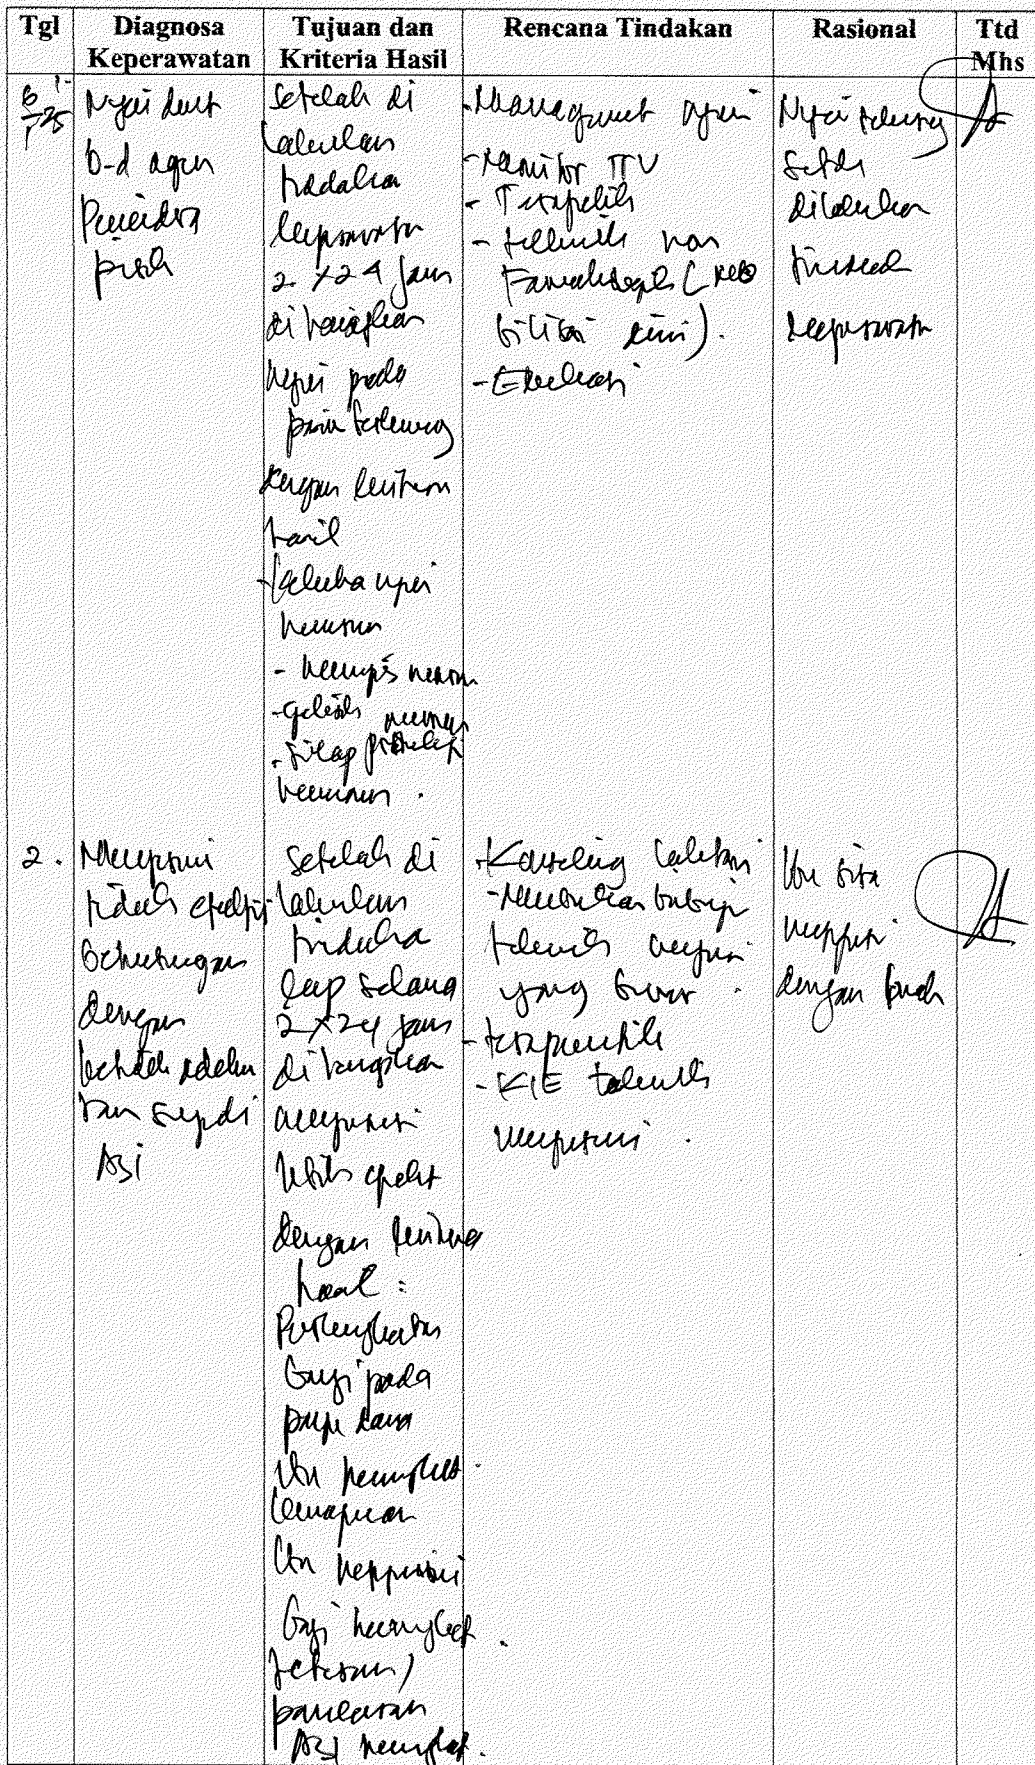 Tgl Diagnosa Keperawatan Tujuan dan Kriteria Hasil Rencana Tindakan Rasional Ttd Mhs
Nyeri akut
b-d agen
Pencidera
fisik
Setelah di
lakukan
tindakan
keperawatan
2 x 24 jam
di harapkan
nyeri pada
berkurang
dengan kriteria
hasil
- keluhan nyeri
menurun
- meringis menurun
- gelisah menurun
- sikap protektif
menurun .
- Managament nyeri
- Monitor TTV
- Terapeutik
- tekhnik non
Farmakologis (mobilisasi dini) .
- Edukasi
Nyeri
setelah
dilakukan
tindakan
keperawatan
2 . Menyusui
tidak efektif
berhubungan
dengan
ketidak adekuatan suplai
ASI
Setelah di
lakukan
tindakan
kep selama
2 x 24 jam
di harapkan
menyusui
lebih
dengan kriteria
hasil :
Perlengketan
bayi pada
payudara
ibu meningkat
kemampuan
ibu memposisikan
bayi meningkat .
tetesan /
pancaran
ASI meningkat .
- Konseling laktasi
tekhnik menyusui
yang benar .
- terapeutik
- KIE tekhnik
menyusui .
Ibu bisa
menyusui
dengan